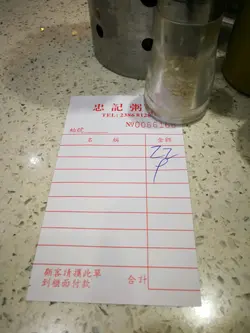 忠記粥
TEL: 2386 812
枱號
名 稱 金額
顧客請攜此單
到櫃面付款
合計